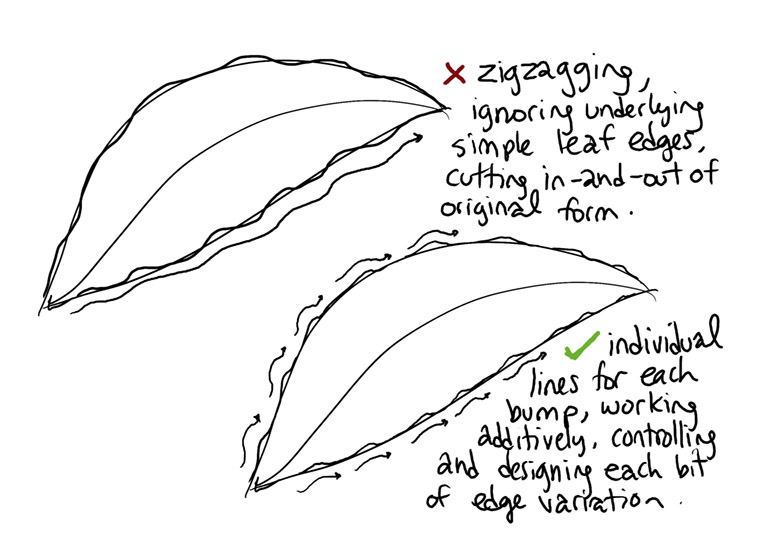 zigzagging,
ignoring underlying
simple leaf edges,
cutting in-and-out of
original form.
individual
lines for each
bump, working
additively, controlling
and designing each bit
of edge variation.